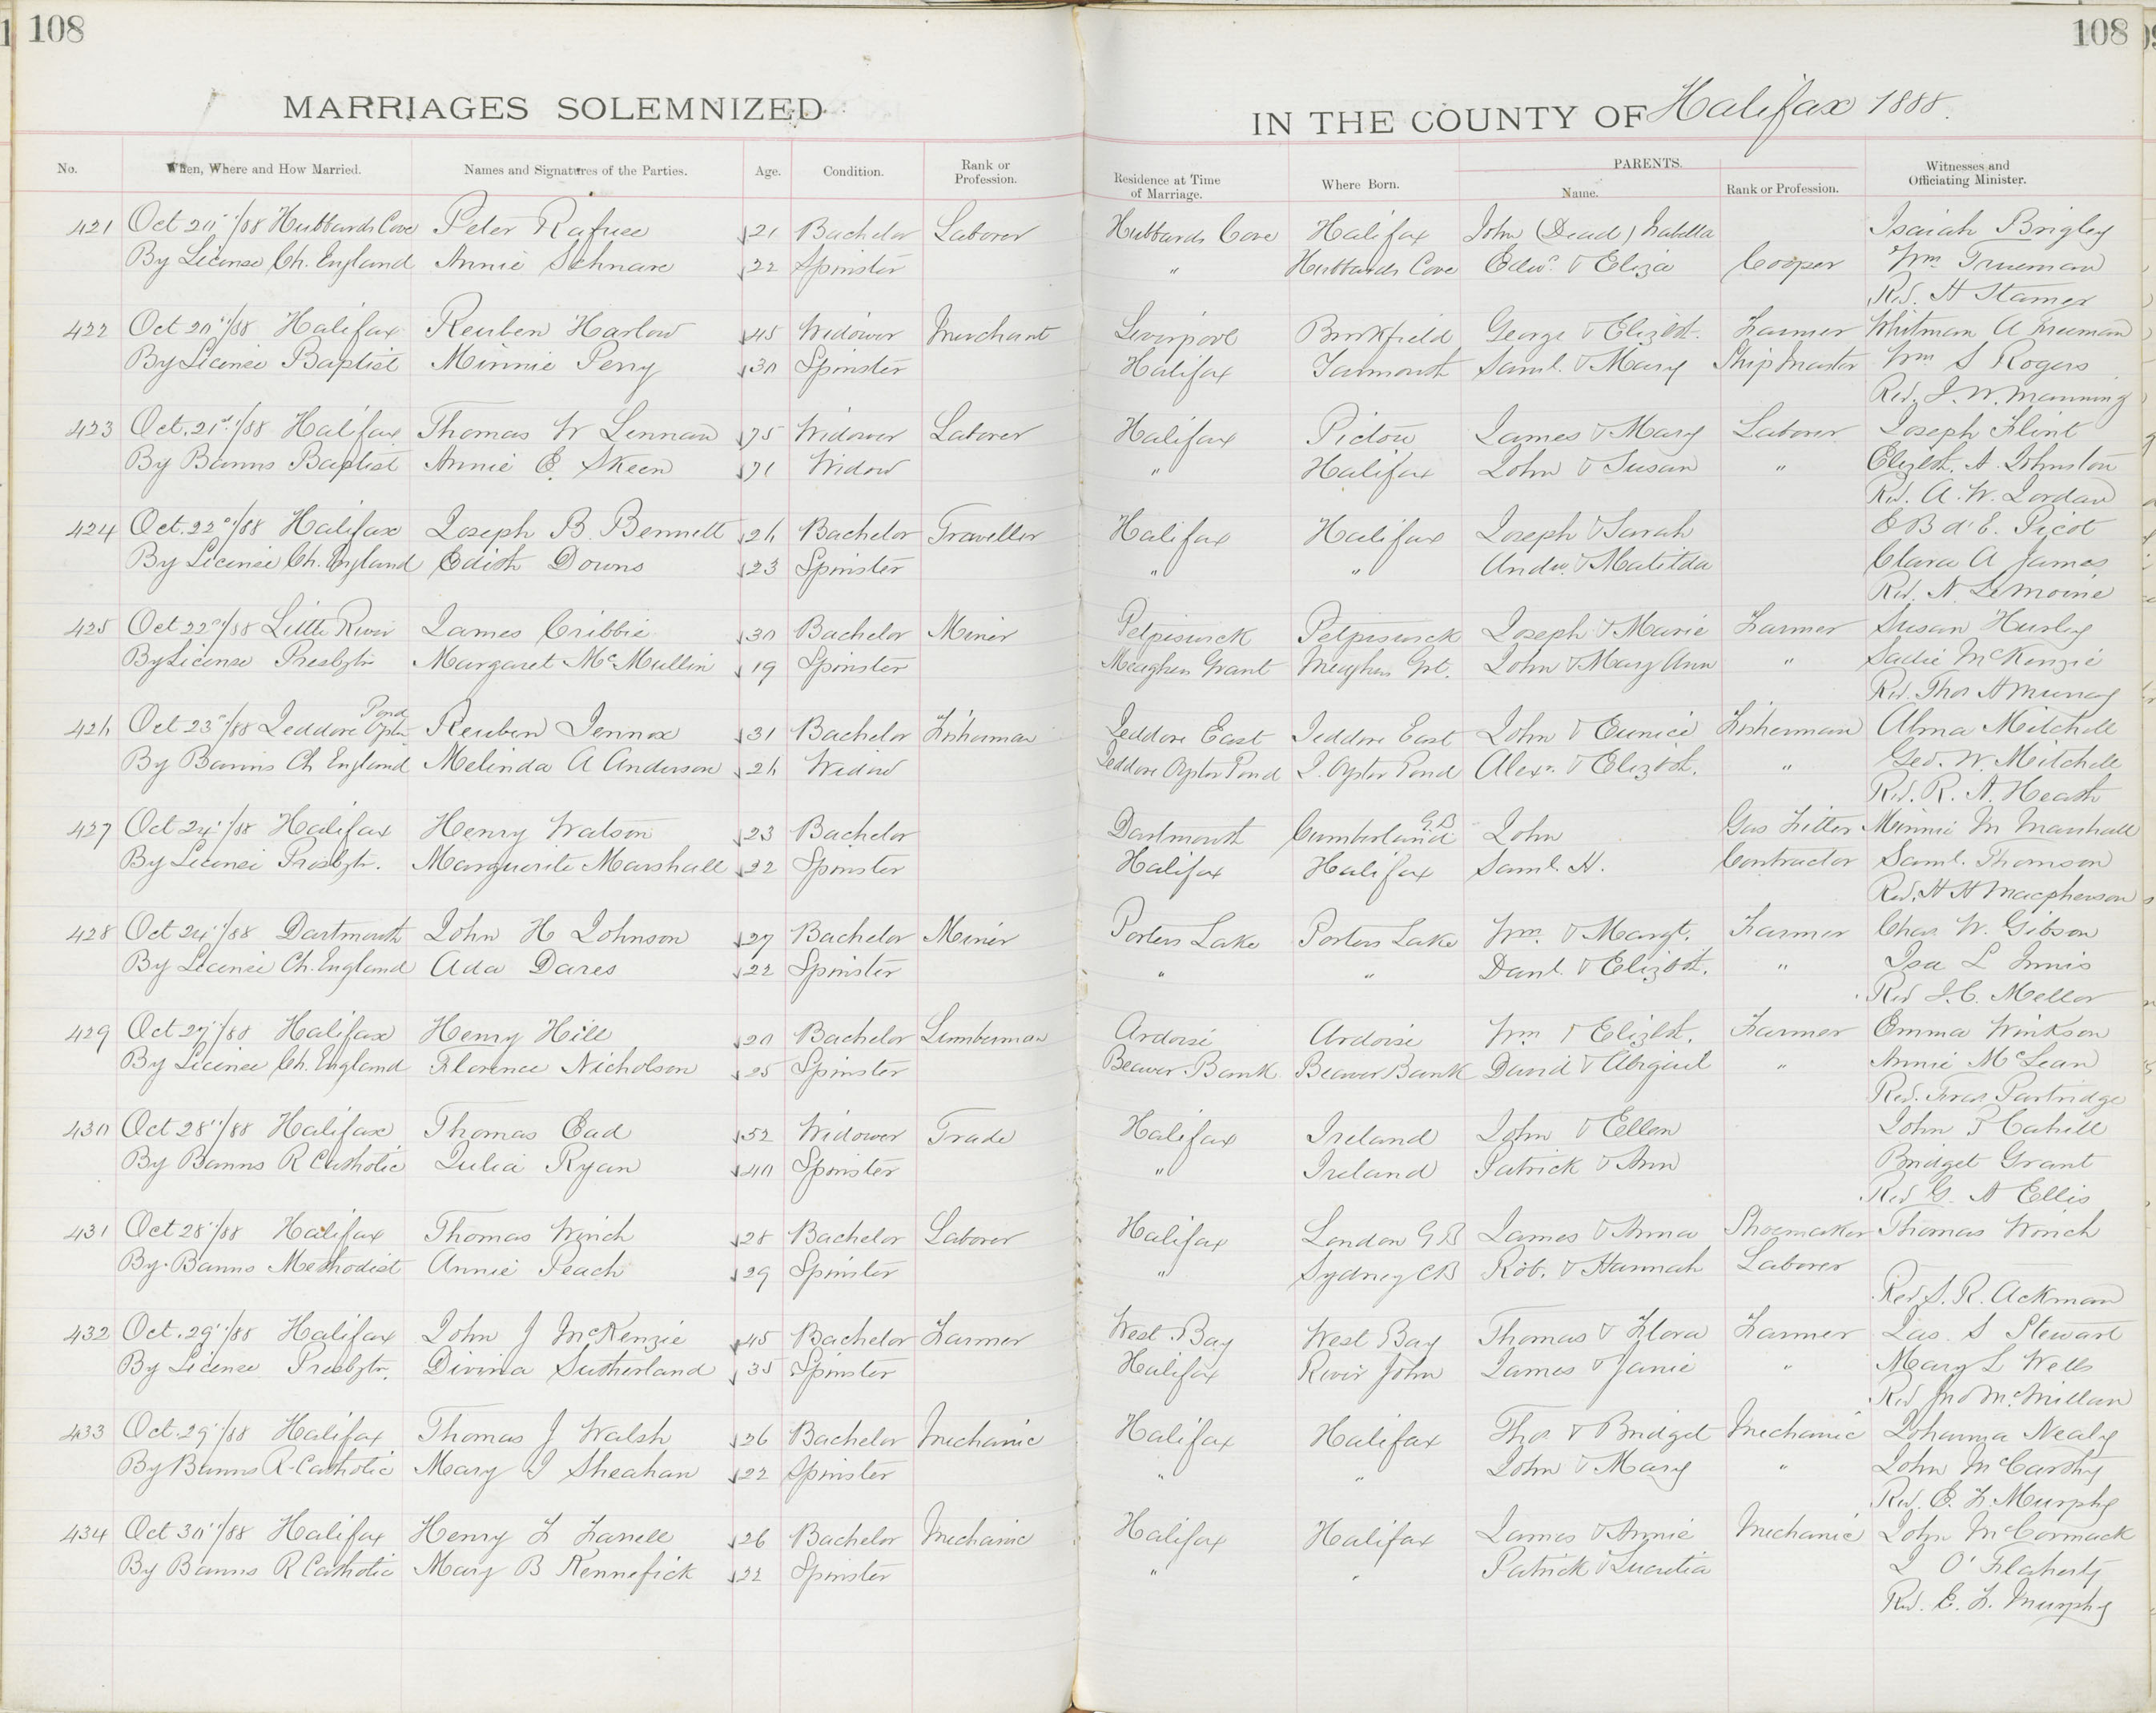 108
108
MARRIAGES SOLEMNIZED
IN THE COUNTY OF Halifax 1888.
No. When, Where and How Married. Names and Signatures of the Parties. Age. Condition. Rank or Profession. Residence at Time of Marriage. Where Born. PARENTS. Name. Rank or Profession. Witnesses and Officiating Minister.
421 Oct 20"/88 Hubbards Cove Peter Rafuse 21 Bachelor Laborer Hubbards Cove Halifax John (Dead) Isabella Isaiah Brigley
By License Ch. England Annie Schnare 22 Spinster " Hubbards Cove Edwd. & Eliza Cooper Wm Trueman
Rev. H Stamer
422 Oct 20"/88 Halifax Reuben Harlow 45 Widower Merchant Liverpool Brookfield George & Elizbth. Farmer Whitman A Freeman
By Licence Baptist Minnie Perry 30 Spinster Halifax Yarmouth Saml. & Mary Ship Master Wm S Rogers
Rev. J. W. Manning
423 Oct. 21st/88 Halifax Thomas W Lennan 75 Widower Laborer Halifax Pictou James & Mary Laborer Joseph Flint
By Banns Baptist Annie E. Skeen 71 Widow " Halifax John & Susan " Elizbth. A. Johnston
Rev. A. W. Jordan
424 Oct. 22d/88 Halifax Joseph B. Bennett 26 Bachelor Traveller Halifax Halifax Joseph & Sarah E B d' E. Picot
By Licence Ch. England Edith Downs 23 Spinster " " Andw. & Matilda Clara A James
Rev. N. LeMoine
425 Oct 22d/88 Little River James Cribbie 30 Bachelor Miner Petpiswick Petpiswick Joseph & Marie Farmer Susan Hurley
By License Presbytr Margaret McMullin 19 Spinster Meaghers Grant Meaghers Grt. John & Mary Ann " Sadie McKenzie
Rev. Thos H Murray
426 Oct 23d/88 Jeddore Oyster Pond Reuben Jennox 31 Bachelor Fisherman Jeddore East Jeddore East John & Eunice Fisherman Alma Mitchell
By Banns Ch England Melinda A Anderson 26 Widow Jeddore Oyster Pond J. Oyster Pond Alexr. & Elizbth. " Geo. W. Mitchell
Rev. R. A. Heath
427 Oct 24"/88 Halifax Henry Watson 23 Bachelor Dartmouth Cumberland G.B John Gas Fitter Minnie M Marshall
By Licence Presbytr. Marguerite Marshall 22 Spinster Halifax Halifax Saml. H. Contractor Saml. Thomson
Rev. H H Macpherson
428 Oct 24"/88 Dartmouth John H Johnson 27 Bachelor Miner Porters Lake Porters Lake Wm. & Margt. Farmer Chas. W. Gibson
By Licence Ch. England Ada Dares 22 Spinster " " Danl. & Elizbth. " Isa L Innis
Rev J. C. Mellor
429 Oct 27"/88 Halifax Henry Hill 20 Bachelor Lumberman Ardoise Ardoise Wm & Elizbth. Farmer Emma Winkson
By Licence Ch. England Florence Nicholson 25 Spinster Beaver Bank Beaver Bank David & Abigail " Annie McLean
Rev. Fras. Partridge
430 Oct 28"/88 Halifax Thomas Ead 52 Widower Trade Halifax Ireland John & Ellen John P Cahill
By Banns R Catholic Julia Ryan 40 Spinster " Ireland Patrick & Ann Bridget Grant
Rev G. A Ellis
431 Oct 28"/88 Halifax Thomas Winch 28 Bachelor Laborer Halifax London G B James & Anna Shoemaker Thomas Winch
By Banns Methodist Annie Peach 29 Spinster " Sydney CB Rob. & Hannah Laborer
Rev S. R. Ackman
432 Oct. 29"/88 Halifax John J McKenzie 45 Bachelor Farmer West Bay West Bay Thomas & Flora Farmer Jas. S Stewart
By Licence Presbytr. Divina Sutherland 35 Spinster Halifax River John James & Janie " Mary L Wells
Rev Jno McMillan
433 Oct. 29"/88 Halifax Thomas J Walsh 26 Bachelor Mechanic Halifax Halifax Thos. & Bridget Mechanic Johanna Nealy
By Banns R-Catholic Mary J Sheahan 22 Spinster " " John & Mary " John McCarthy
Rev. E. F. Murphy
434 Oct 30"/88 Halifax Henry F Farrell 26 Bachelor Mechanic Halifax Halifax James & Annie Mechanic John McCormack
By Banns R Catholic Mary B Kennefick 22 Spinster " " Patrick & Lucretia J O'Flaherty
Rev. E. F. Murphy